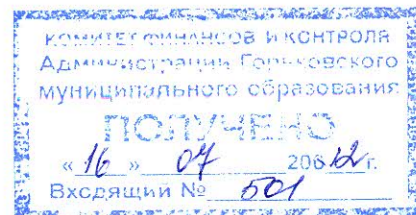 КОМИТЕТ ФИНАНСОВ И КОНТРОЛЯ
Администрации Горьковского
муниципального образования
ПОЛУЧЕНО
«16» 07 20012г.
Входящий № 501